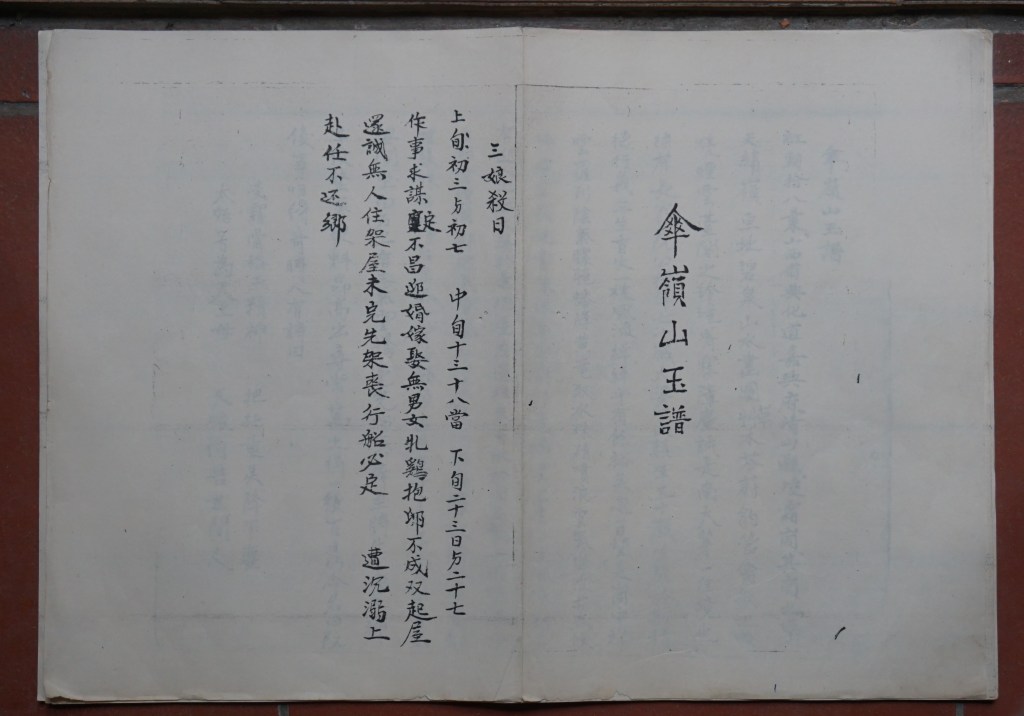 傘嶺山玉譜
三娘殺日
上旬初三与初七 中旬十三十八當 下旬二十三日与二十七
作事求謀定不昌迎婚嫁娶無男女牝鷄抱卵不成双起屋
還誠無人住架屋未完先架喪行船必定 遭沉溺上
赴任不还鄉